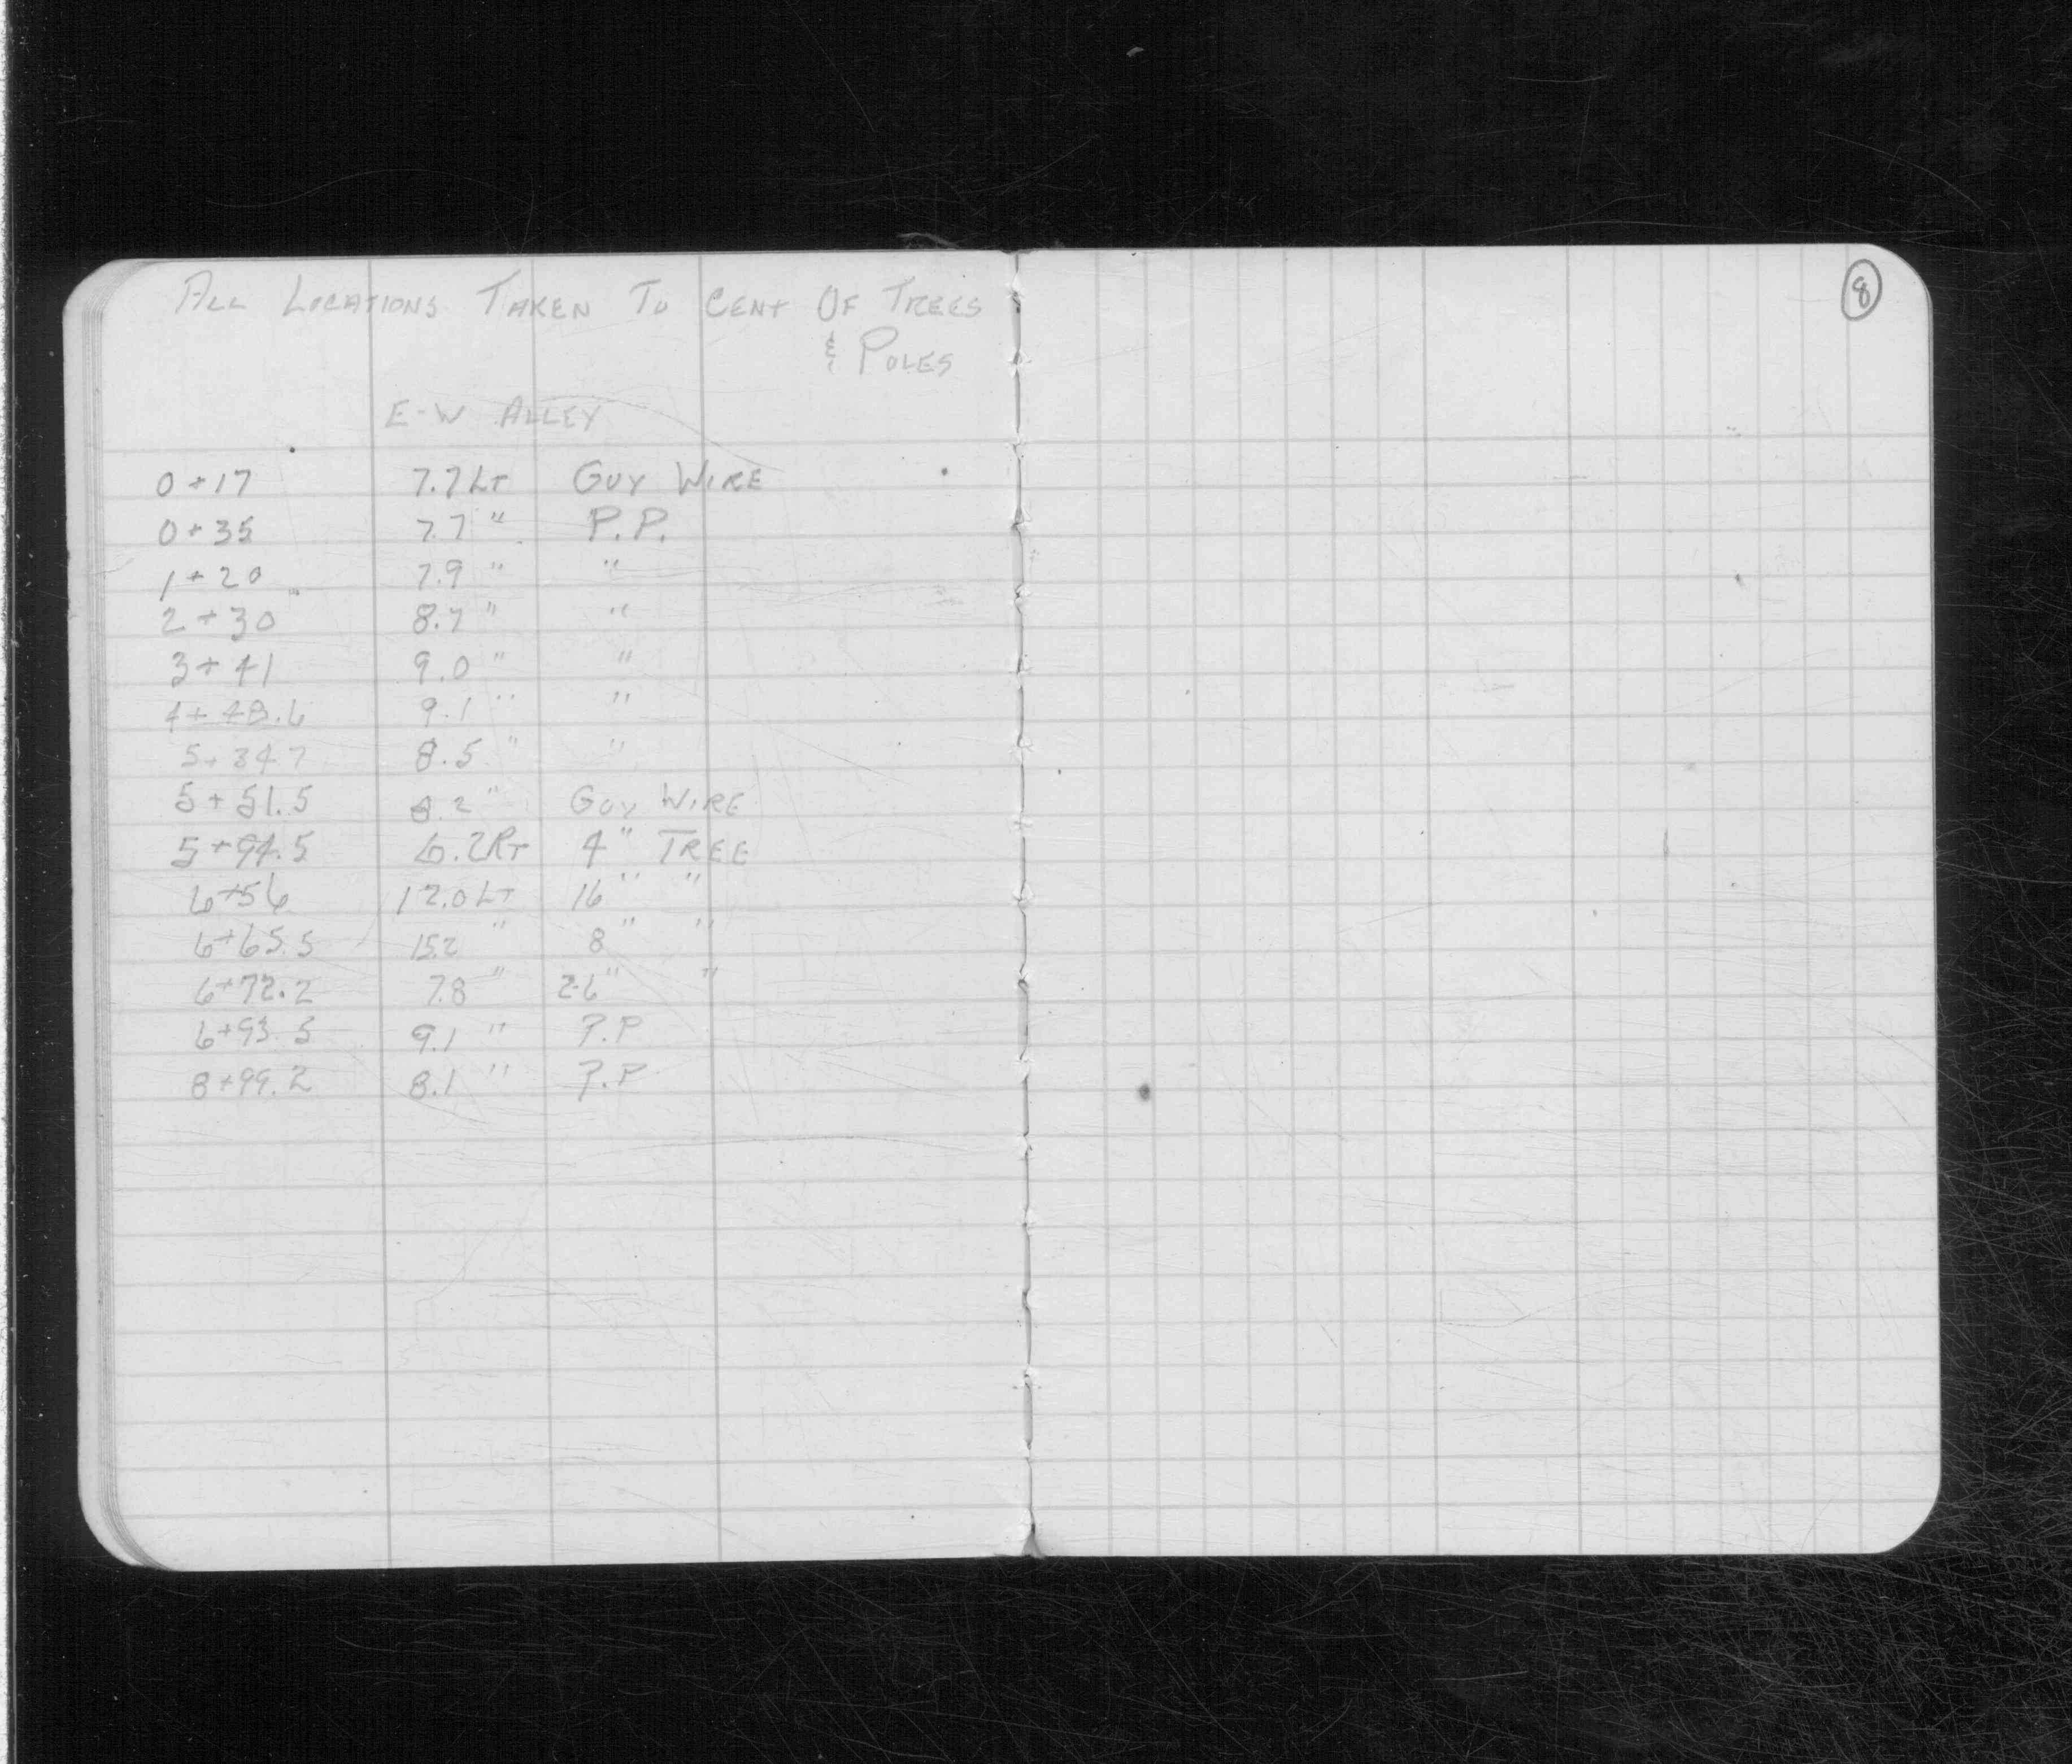 ALL LOCATIONS TAKEN TO CENT OF TREES
& POLES
8
E-W ALLEY
0+17 7.7 LT GUY WIRE
0+35 7.7 " P.P.
1+20 7.9 " "
2+30 8.7 " "
3+41 9.0 " "
4+48.6 9.1 " "
5+34.7 8.5 " "
5+51.5 8.2 " GUY WIRE
5+94.5 6.2 RT 4" TREE
6+56 12.0 LT 16" "
6+65.5 15.2 " 8" "
6+72.2 7.8 " 26" "
6+93.5 9.1 " P.P
8+99.2 8.1 " P.P